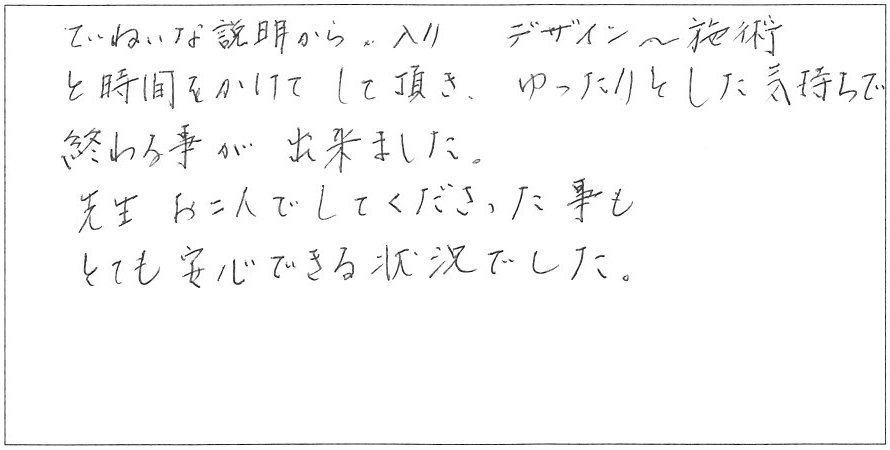 ていねいな説明から、入り デザイン〜施術
と時間をかけて して頂き、ゆったりとした気持ちで
終わる事が 出来ました。
先生 お二人でしてくださった事も
とても安心できる状況でした。